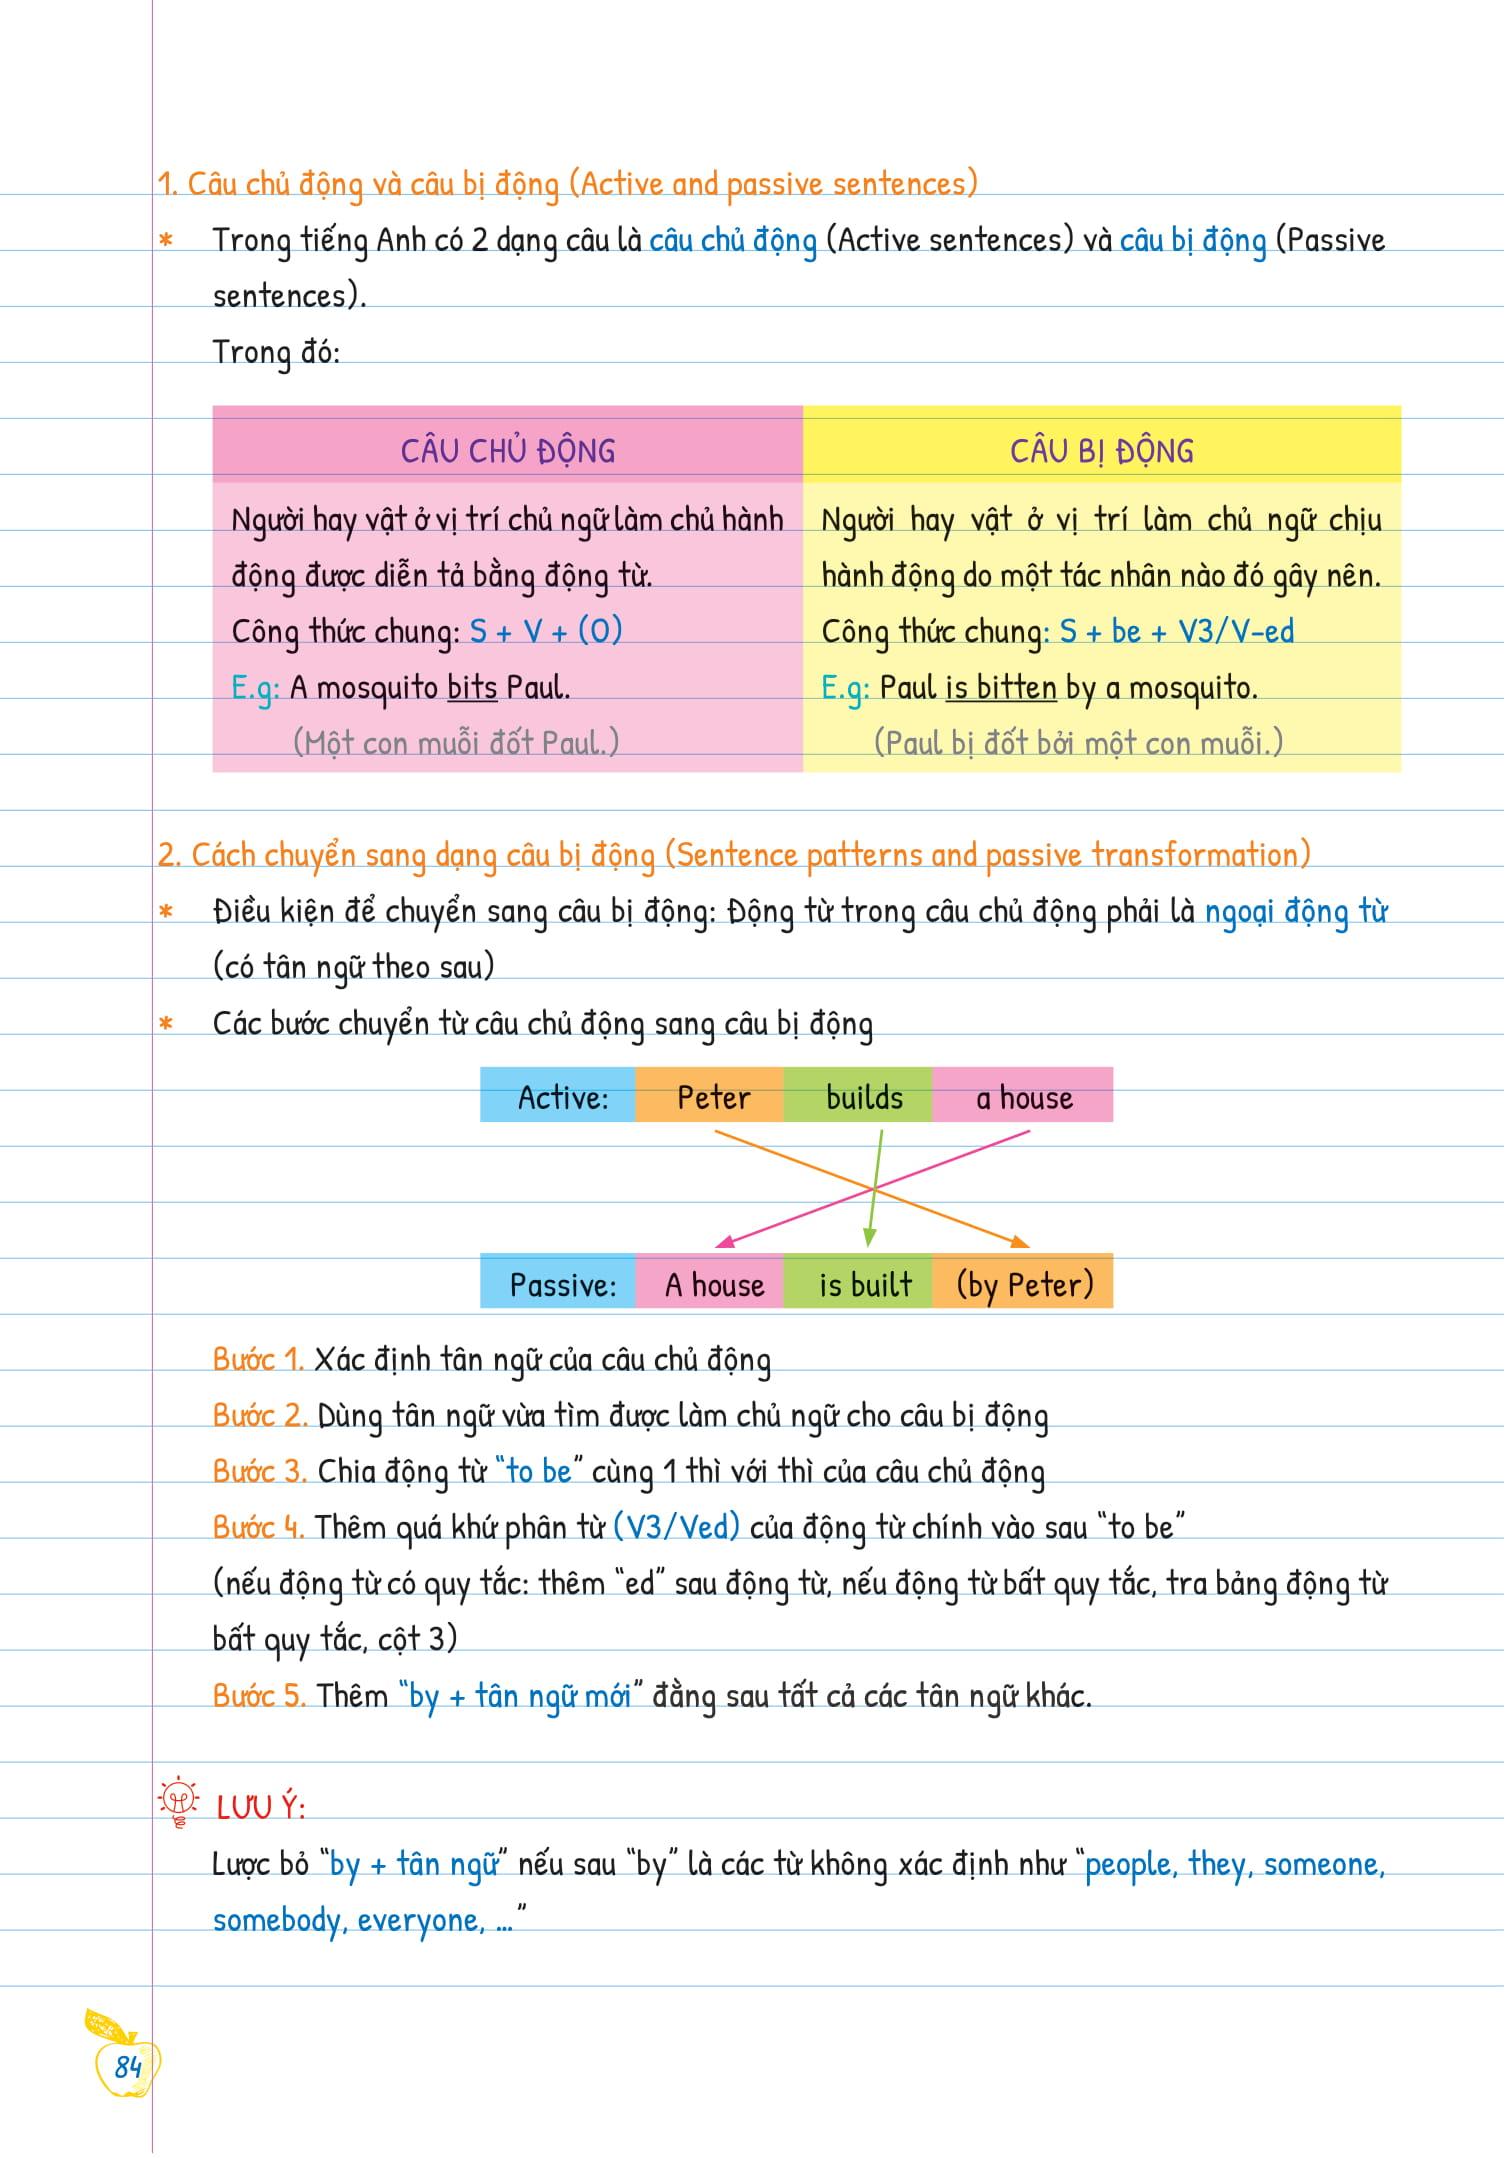 1. Câu chủ động và câu bị động (Active and passive sentences)
* Trong tiếng Anh có 2 dạng câu là câu chủ động (Active sentences) và câu bị động (Passive
sentences).
Trong đó:
CÂU CHỦ ĐỘNG
Người hay vật ở vị trí chủ ngữ làm chủ hành
động được diễn tả bằng động từ.
Công thức chung: S + V + (O)
E.g: A mosquito bits Paul.
(Một con muỗi đốt Paul.)
CÂU BỊ ĐỘNG
Người hay vật ở vị trí làm chủ ngữ chịu
hành động do một tác nhân nào đó gây nên.
Công thức chung: S + be + V3/V-ed
E.g: Paul is bitten by a mosquito.
(Paul bị đốt bởi một con muỗi.)
2. Cách chuyển sang dạng câu bị động (Sentence patterns and passive transformation)
* Điều kiện để chuyển sang câu bị động: Động từ trong câu chủ động phải là ngoại động từ
(có tân ngữ theo sau)
* Các bước chuyển từ câu chủ động sang câu bị động
Active: Peter builds a house
Passive: A house is built (by Peter)
Bước 1. Xác định tân ngữ của câu chủ động
Bước 2. Dùng tân ngữ vừa tìm được làm chủ ngữ cho câu bị động
Bước 3. Chia động từ “to be” cùng 1 thì với thì của câu chủ động
Bước 4. Thêm quá khứ phân từ (V3/Ved) của động từ chính vào sau “to be”
(nếu động từ có quy tắc: thêm “ed” sau động từ, nếu động từ bất quy tắc, tra bảng động từ
bất quy tắc, cột 3)
Bước 5. Thêm “by + tân ngữ mới” đằng sau tất cả các tân ngữ khác.
LƯU Ý:
Lược bỏ “by + tân ngữ” nếu sau “by” là các từ không xác định như “people, they, someone,
somebody, everyone, ...”
84